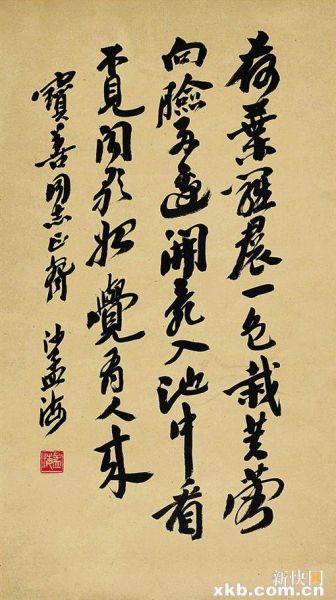 荷葉羅裠一色裁芙蓉
向臉兩邊開亂入池中看
不見聞歌始覺有人來
寶善同志正
沙孟海
新快网
xkb.com.cn